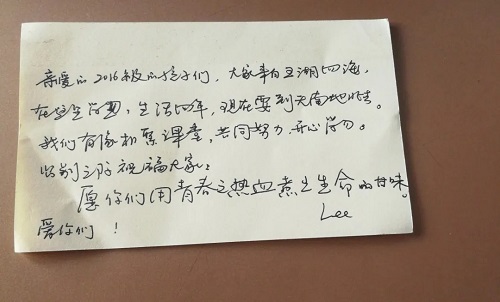 亲爱的2016级的孩子们,大家来自五湖四海,
在这里学习,生活四年,现在要到天南地北去。
我们有缘相聚课堂,共同努力,开心学习。
临别之际祝福大家:
愿你们用青春之热血煮出生命的甘味,
Lee
爱你们!